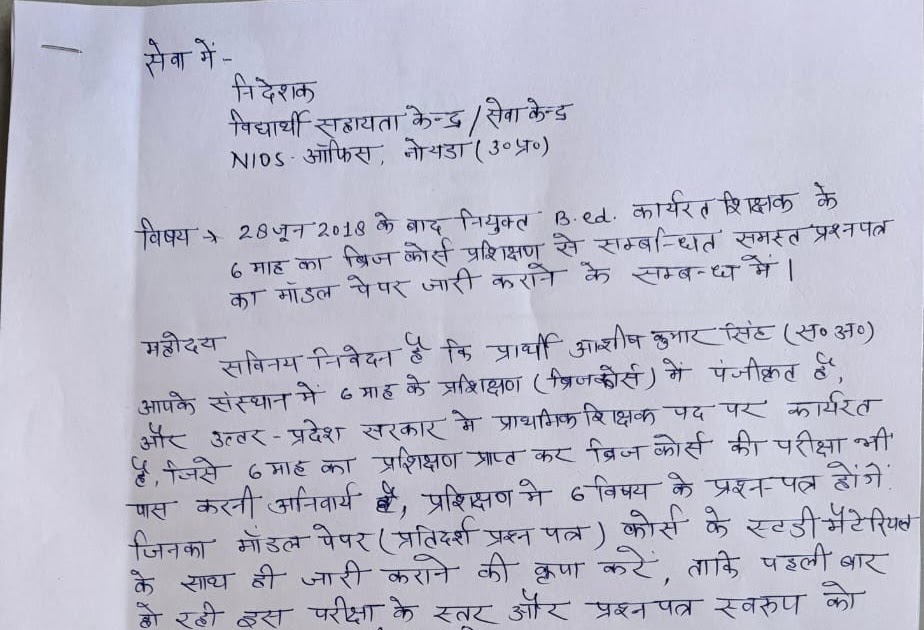 सेवा में -
निदेशक
विद्यार्थी सहायता केन्द्र / सेवा केन्द्र
NIOS ऑफिस, नोयडा (उ०प्र०)
विषय → 28 जून 2018 के बाद नियुक्त B.ed. कार्यरत शिक्षक के
6 माह का ब्रिज कोर्स प्रशिक्षण से सम्बन्धित समस्त प्रश्नपत्र
का मॉडल पेपर जारी कराने के सम्बन्ध में।
महोदय
सविनय निवेदन है कि प्रार्थी आशीष कुमार सिंह (स० अ०)
आपके संस्थान में 6 माह के प्रशिक्षण (ब्रिजकोर्स) में पंजीकृत है,
और उत्तर-प्रदेश सरकार मे प्राथमिक शिक्षक पद पर कार्यरत
है, जिसे 6 माह का प्रशिक्षण प्राप्त कर ब्रिज कोर्स की परीक्षा भी
पास करनी अनिवार्य है, प्रशिक्षण मे 6 विषय के प्रश्न-पत्र होंगें.
जिनका मॉडल पेपर (प्रतिदर्श प्रश्न पत्र) कोर्स के स्टडी मैटेरियल
के साथ ही जारी कराने की कृपा करें, ताकि पहली बार
हो रही इस परीक्षा के स्तर और प्रश्नपत्र स्वरुप को